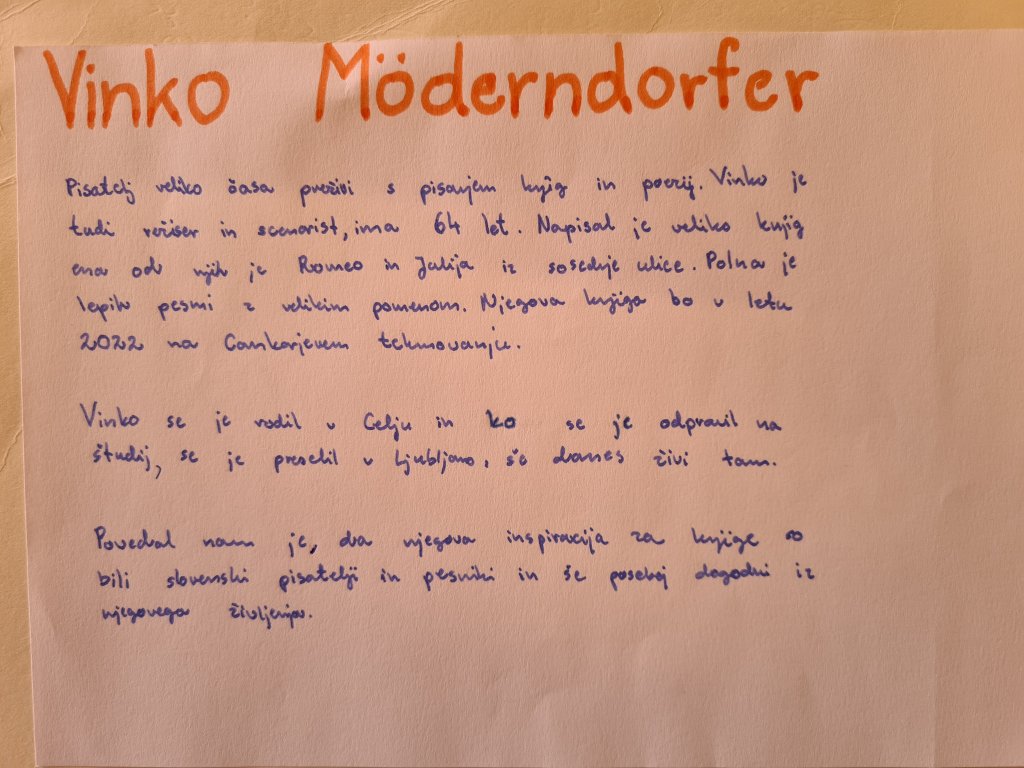 Vinko Möderndorfer
Pisatelj veliko časa preživi s pisanjem knjig in poezij. Vinko je
tudi režiser in scenarist, ima 64 let. Napisal je veliko knjig
ena od njih je Romeo in Julija iz sosednje ulice. Polna je
lepih pesmi z velikim pomenom. Njegova knjiga bo v letu
2022 na Cankarjevem tekmovanju.
Vinko se je rodil v Celju in ko se je odpravil na
študij, se je preselil v Ljubljano, še danes živi tam.
Povedal nam je, da njegova inspiracija za knjige so
bili slovenski pisatelji in pesniki in še posebej dogodki iz
njegovega življenja.